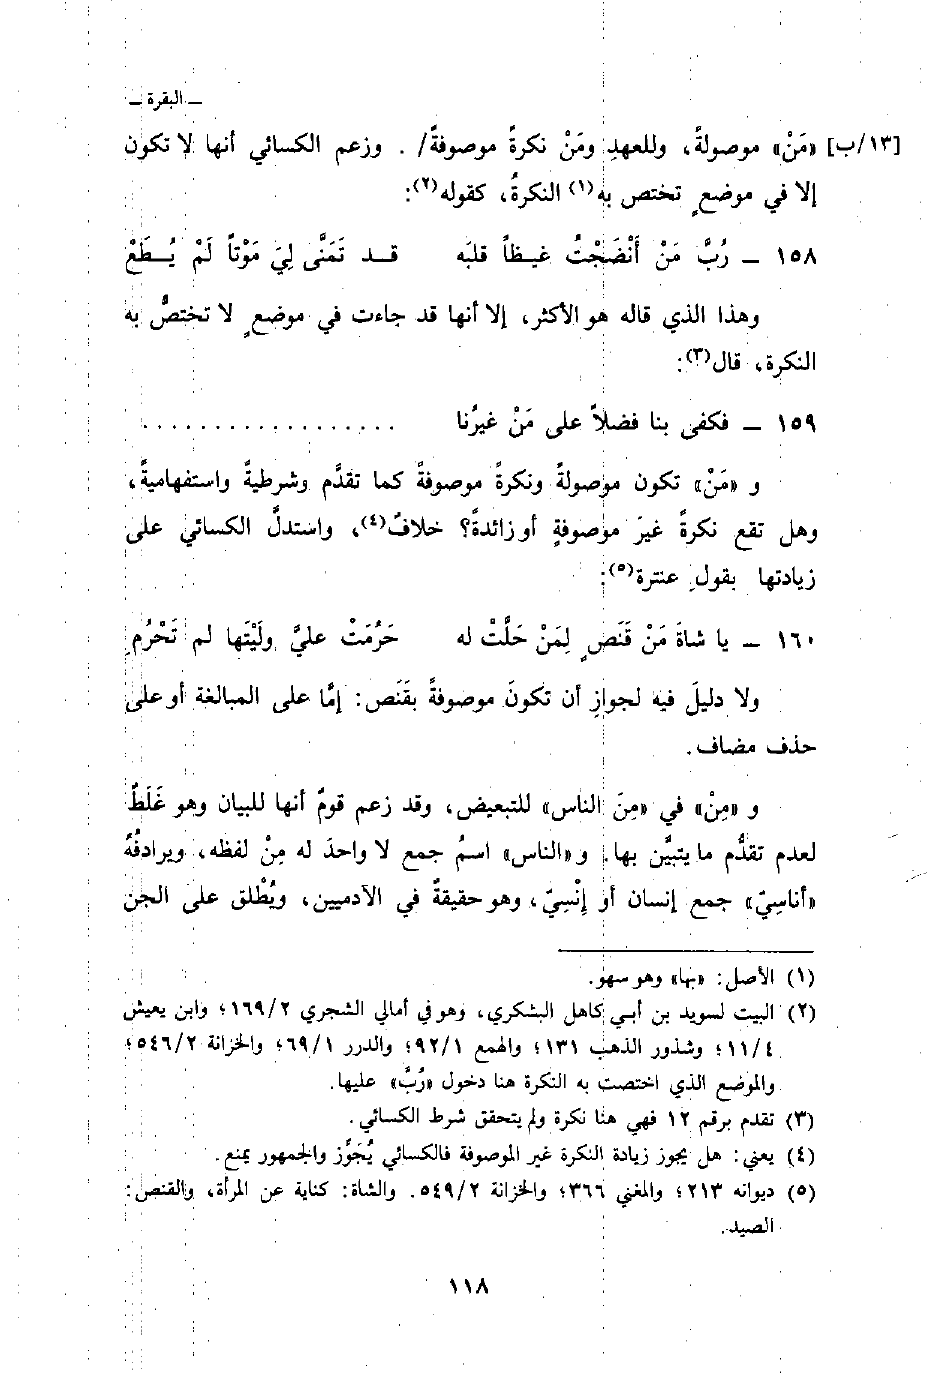 ــ البقرة ــ
[١٣/ب] «مَنْ» موصولةً، وللعهدِ ومَنْ نكرةً موصوفةً/ . وزعم الكسائي أنها لا تكون
إلا في موضعٍ تختص به(١) النكرةُ، كقوله(٢):
١٥٨ ــ رُبَّ مَنْ أَنْضَجْتُ غيظاً قلبَه قد تَمَنَّى لِيَ مَوْتاً لَمْ يُطَعْ
وهذا الذي قاله هو الأكثر، إلا أنها قد جاءت في موضعٍ لا تختصُّ به
النكرة، قال(٣):
١٥٩ ــ فكفى بنا فضلاً على مَنْ غيرُنا ..................
و «مَنْ» تكون موصولةً ونكرةً موصوفةً كما تقدَّم وشرطيةً واستفهاميةً،
وهل تقع نكرةً غيرَ موصوفةٍ أو زائدةً؟ خلافٌ(٤)، واستدلَّ الكسائي على
زيادتها بقولِ عنترة(٥):
١٦٠ ــ يا شاةَ مَنْ قَنَصٍ لِمَنْ حَلَّتْ له حَرُمَتْ عليَّ ولَيْتَها لم تَحْرُمِ
ولا دليلَ فيه لجوازِ أن تكونَ موصوفةً بقَنَص: إمَّا على المبالغة أو على
حذف مضاف.
و «مِنْ» في «مِنَ الناس» للتبعيض، وقد زعم قومٌ أنها للبيان وهو غَلَطٌ
لعدم تقدُّم ما يتبيَّن بها. و«الناس» اسمُ جمع لا واحدَ له مِنْ لفظه، ويرادفُهُ
«أناسِيّ» جمع إنسان أو إنْسِيّ، وهو حقيقةٌ في الآدميين، ويُطْلق على الجن
(١) الأصل: «بها» وهو سهو.
(٢) البيت لسويد بن أبي كاهل اليشكري، وهو في أمالي الشجري ١٦٩/٢؛ وابن يعيش
١١/٤؛ وشذور الذهب ١٣١؛ والهمع ٩٢/١؛ والدرر ٦٩/١؛ والخزانة ٥٤٦/٢؛
والموضع الذي اختصت به النكرة هنا دخول «رُبَّ» عليها.
(٣) تقدم برقم ١٢ فهي هنا نكرة ولم يتحقق شرط الكسائي.
(٤) يعني: هل يجوز زيادة النكرة غير الموصوفة فالكسائي يُجَوِّز والجمهور يمنع.
(٥) ديوانه ٢١٣؛ والمغني ٣٦٦؛ والخزانة ٥٤٩/٢. والشاة: كناية عن المرأة، والقنص:
الصيد.
١١٨